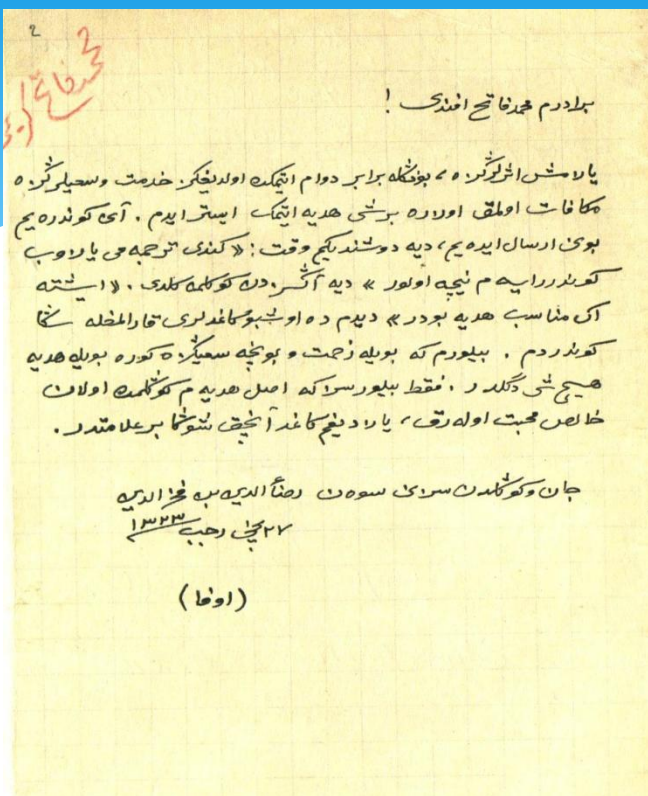 2
محمد فاتح
برادرم محمد فاتح افندی !
یازمش اثرلرڭزه ، بوڭا برابر دوام ایتمكده اولدیغڭز خدمت وسعیلرڭزه
مكافات اولمق اوزره برشی هدیه ایتمك ایستر ایدم . آنی كوندره یم
بونی ارسال ایده یم ، دیه دوشندیكم وقت : « كندی ترجمه می یازوب
كوندررایسه م نیچه اولور » دیه آڭسزدن كوڭلمه كلدی . « ایشته
اڭ مناسب هدیه بودر » دیدم ده اوشبو كاغدلری قارالمغله سڭا
كوندردم . بیلورم كه بویله زحمت و بونچه سعیڭزه كوره بویله هدیه
هیچ شی دگلدر . فقط بیلورسز كه اصل هدیه م كوڭلمده اولان
خالص محبت اوله رق ، یازدیغم كاغد آنجق شوڭا بر علامتدر .
جان وكوڭلدن سزی سوه ن رضاءالدین بن فخرالدین
۲۷ نچی رجب ۱۳۲۳
(اوفا)